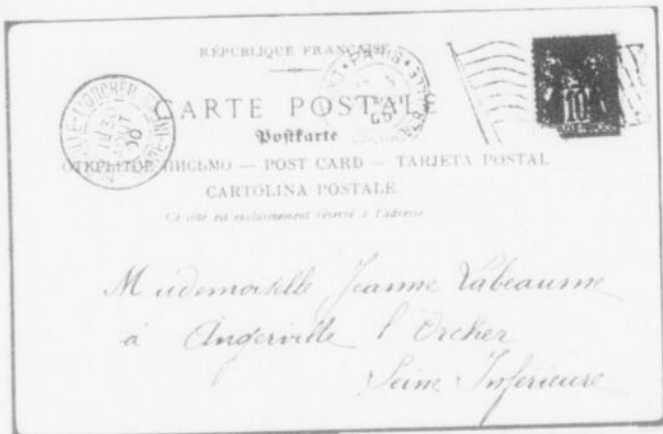 RÉPUBLIQUE FRANÇAISE
CARTE POSTALE
Postkarte
ОТКРЫТОЕ ПИСЬМО — POST CARD — TARJETA POSTAL
CARTOLINA POSTALE
Ce côté est exclusivement réservé à l'adresse
PARIS
10
AOUT
Mademoiselle Jeanne Labeaume
à Angerville l'Orcher
Seine Inferieure